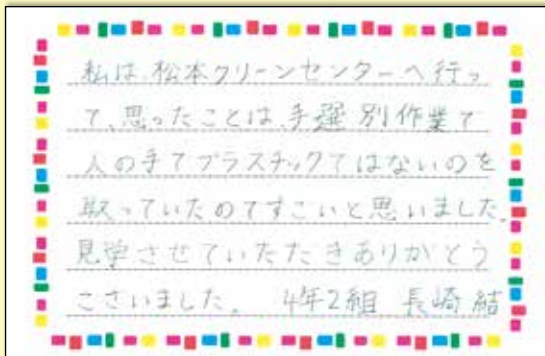 私は、松本クリーンセンターへ行っ
て、思ったことは、手選別作業で
人の手でプラスチックではないのを
取っていたのですごいと思いました。
見学させていただきありがとう
ございました。 4年2組 長崎結